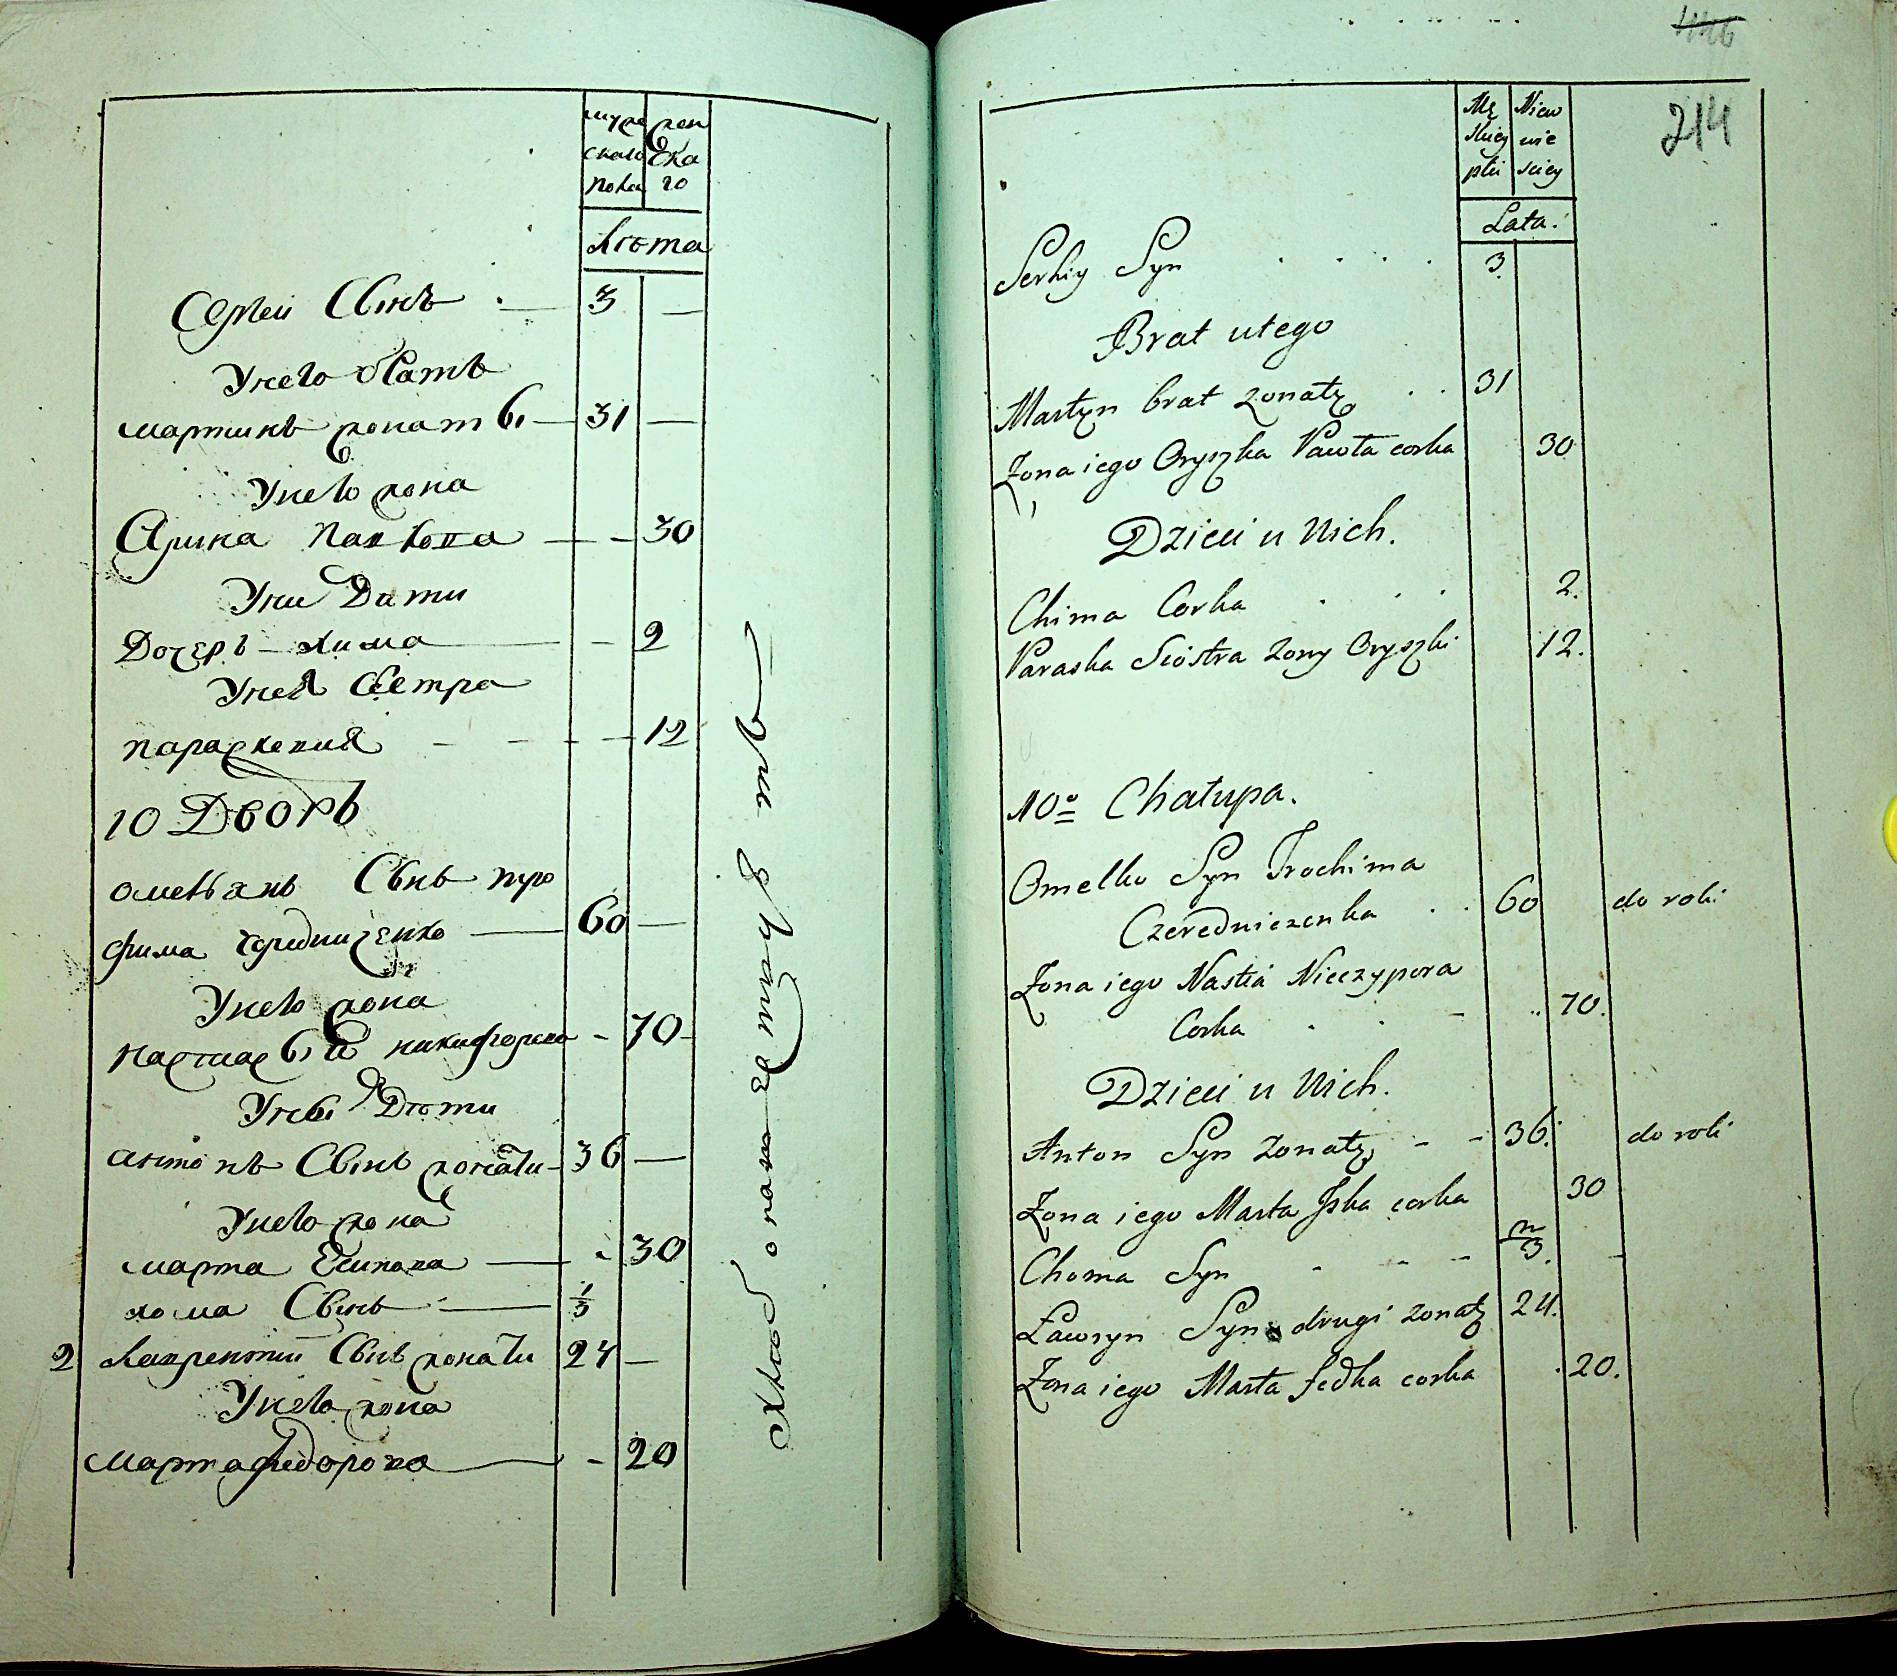 муже жен
скаго ска
пола го
лѣта
Сергеи Сынъ 3 —
Унего братъ
мартинъ женатъ 31 —
Унего жена
Арина Павлова — 30
Уни Дети
Дочеръ хима — 2
Унея Сестра
параскевия — 12
10 Дворъ
омельянъ Сынъ тро
фима чередниченко 60 —
Унего жена
настасья никифорова - 70
Унихъ Дети
антонъ Сынъ женати 36 —
Унего жена
марта Есипова - 30
хома Сынъ 1/3
2 лаврентии Сынъ женати 24 —
Унего жена
марта федорова - 20
Хлебопашествуетъ
446
214
Mę Niew
skiey wie
płci sciey
Lata.
Serhiy Syn . . . . 3.
Brat utego
Martyn brat zonaty . . 31
Zona iego Oryszka Pawła corka 30
Dzieci u Nich.
Chima Corka . . . 2.
Paraska Siostra zony Oryszki 12.
10º Chałupa.
Omelko Syn Trochima
Czeredniczenka . . 60 do roli
Zona iego Nastia Nieczypora
Corka . . - .. 70.
Dzieci u Nich.
Anton Syn zonaty - - 36. do roli
Zona iego Marta Jska corka 30
Choma Syn - - - m/3. -
Ławryn Syn drugi zonaty 24.
Zona iego Marta fedka corka . 20.